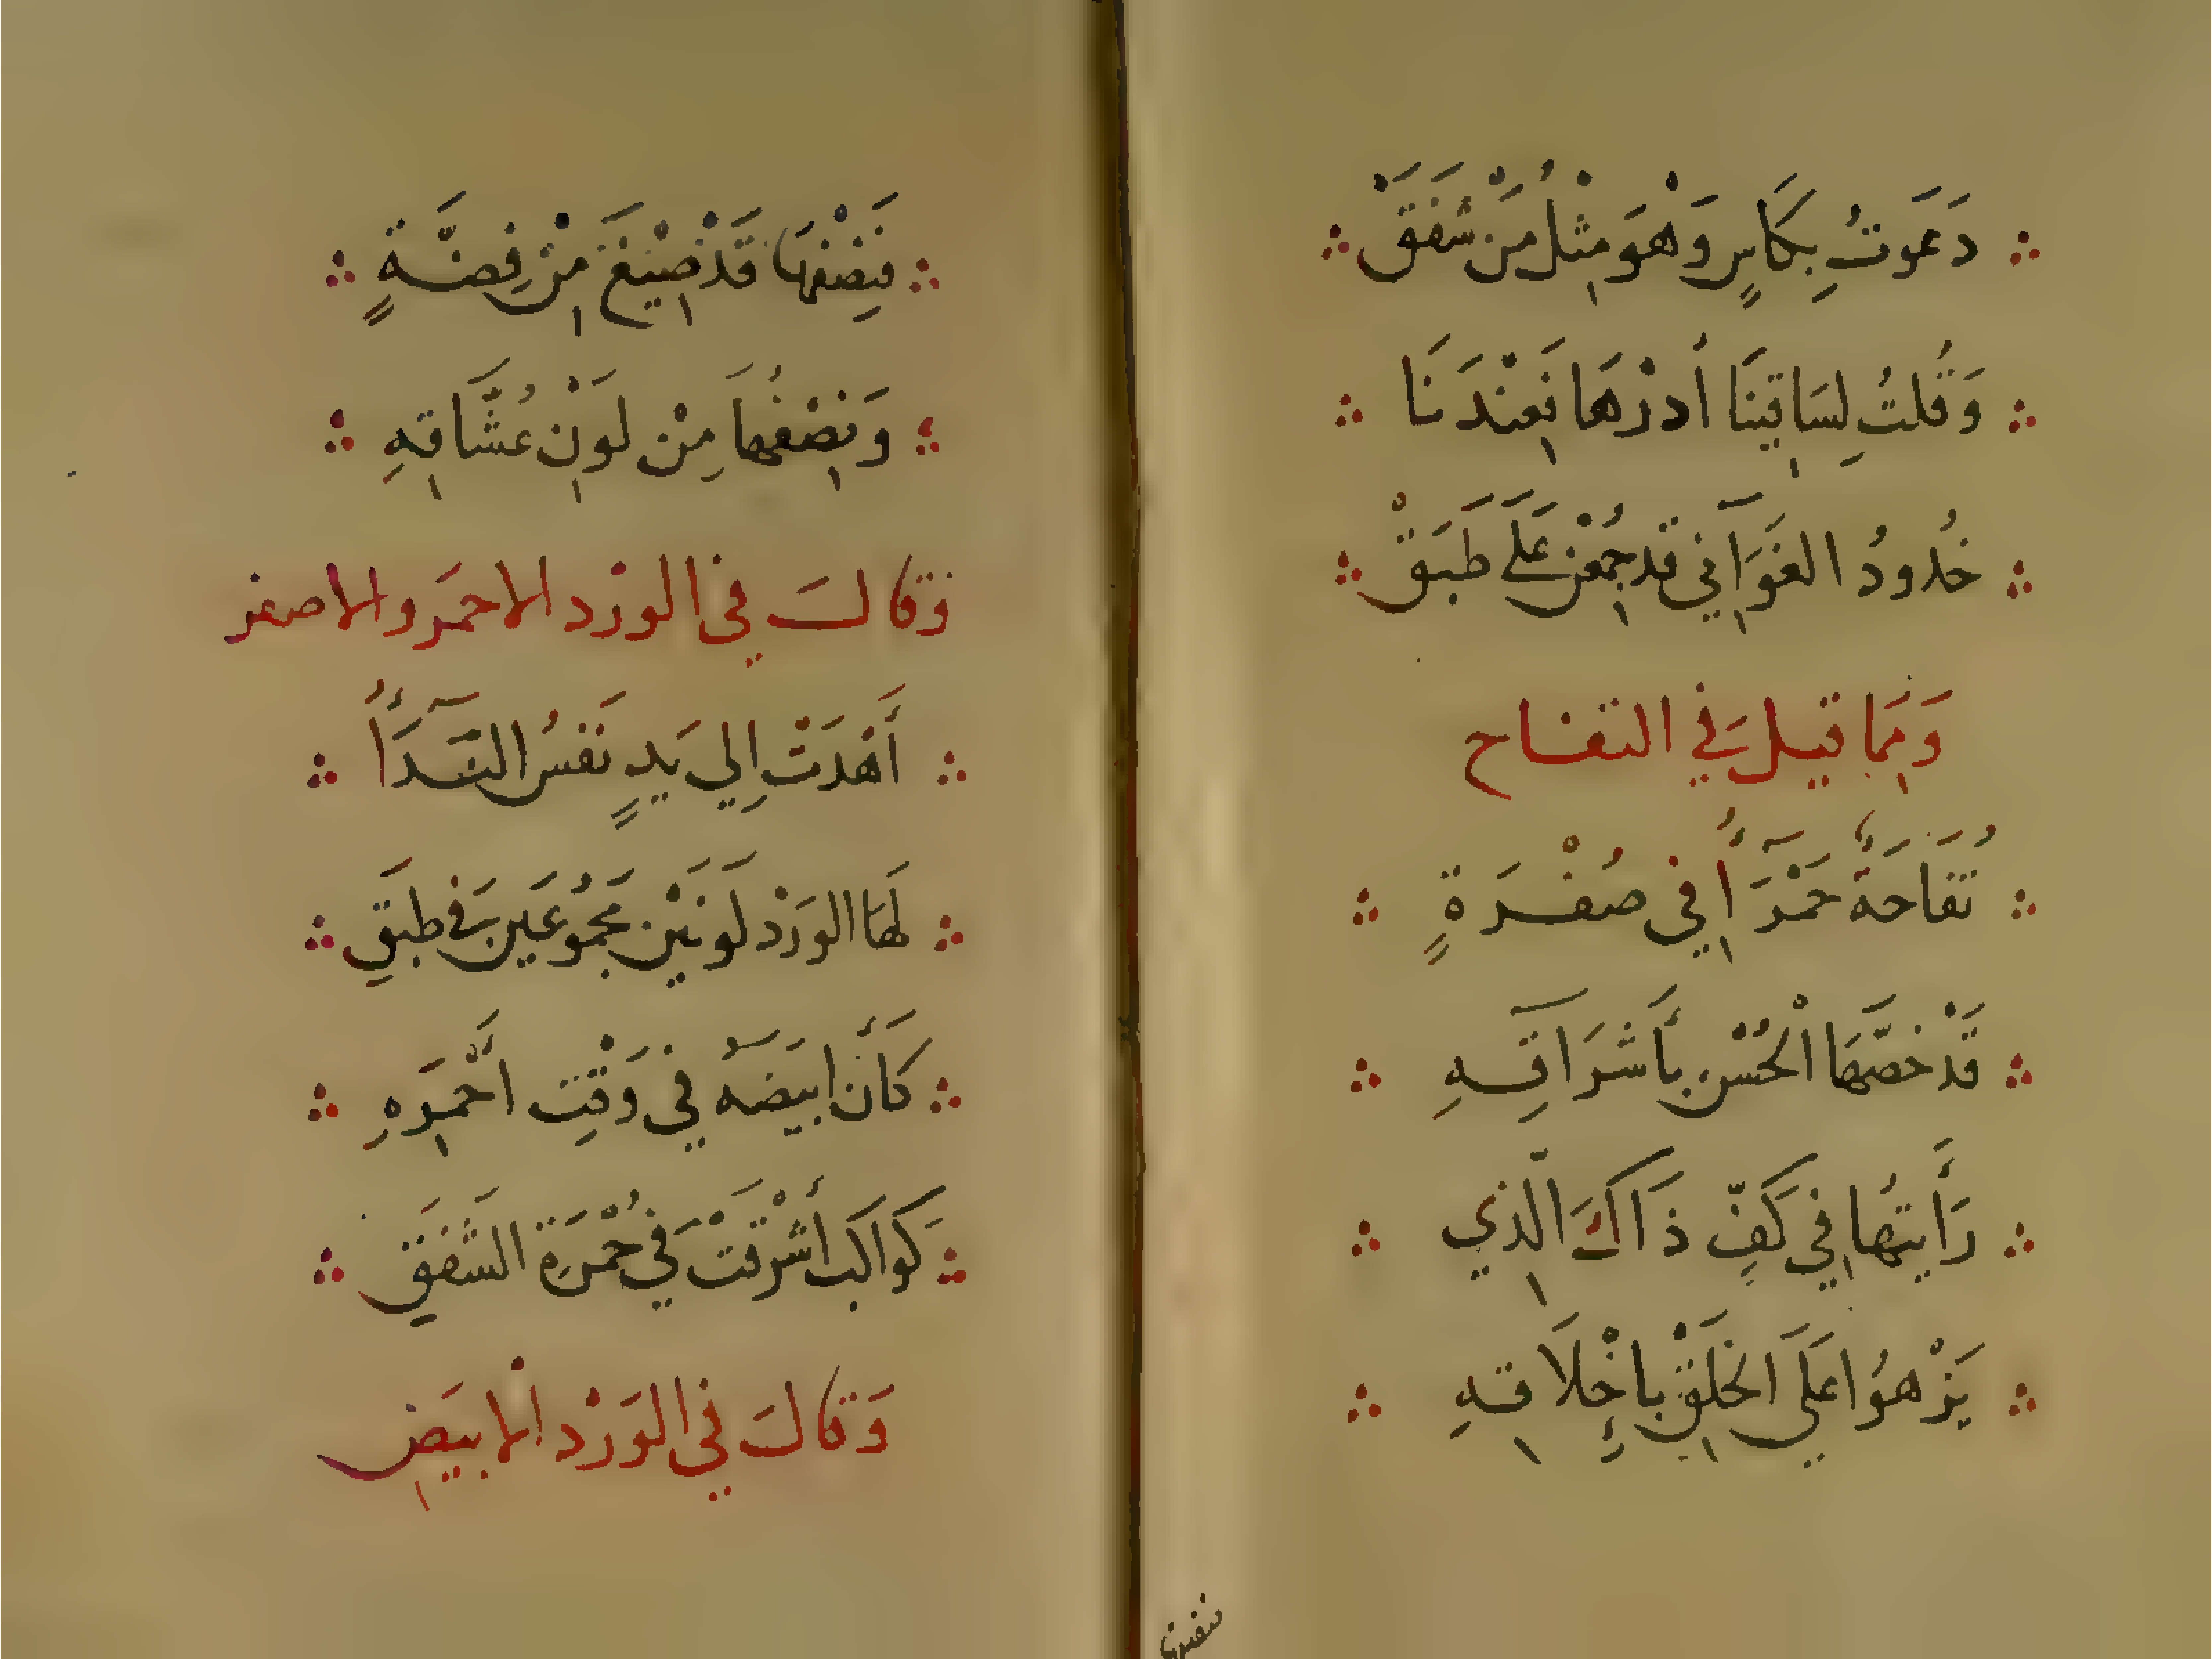 دَعَوتُ بِكَاسٍ وَهْوَ مِثْلُ مِّنْ شَفَقَ
وَقُلتُ لِسَاقِينَا أَدرْهَا فَعِنْدَنَا
خُدودُ الغَوَآنِي قد جُمِعْنَ عَلَى طَبَقْ
وَمِمَا قيلَ في التفاح
تُفَاحَةً حَمْرَآأُ فِي صُفْرَةٍ
قَدْ خصَّهَا الْحُسْن بأَشرَاقِهِ
رَأَيتُهَا فِي كَفِّ ذَاكَ الَّذِي
يَزْهوُا عَلَى الخَلَقْ بِاِخْلَاقِهِ
فَنِصْفهَا قَدْ صِيْغَ مِنْ فِضَّةٍ
وَنِصْفُهاَ مِنْ لَوْنِ عُشَّاقِهِ
وَقالَ في الورْد الاحمَر والاصفر
أَهَدَتْ اِلي يَدٍ نَفسُ النَدَآأُ
لهَا الورَدْ لَونَيْن مَجمُوعَينَ في طبَقِ
كَأَنَ ابيَضَهُ في وَقْتِ أَحْمَرِهِ
كَواكب أَشْرَقَتْ في حُمْرَةِ الشَّفَقِ
وَقَالَ فِي الوَرْد الابيَضِ
فنصفها